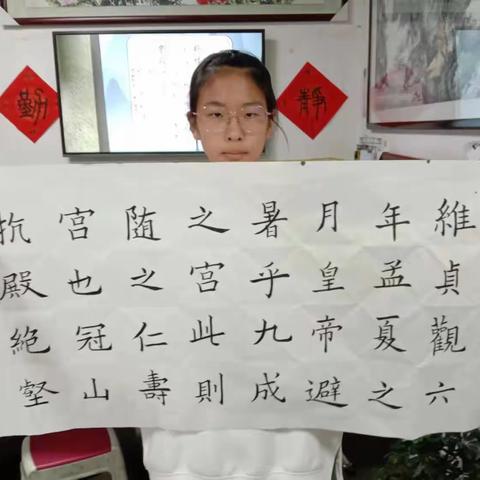 維貞觀六
年孟夏之
月皇帝避
暑乎九成
之宮此則
随之仁壽
宮也冠山
抗殿絶壑
勤
靜